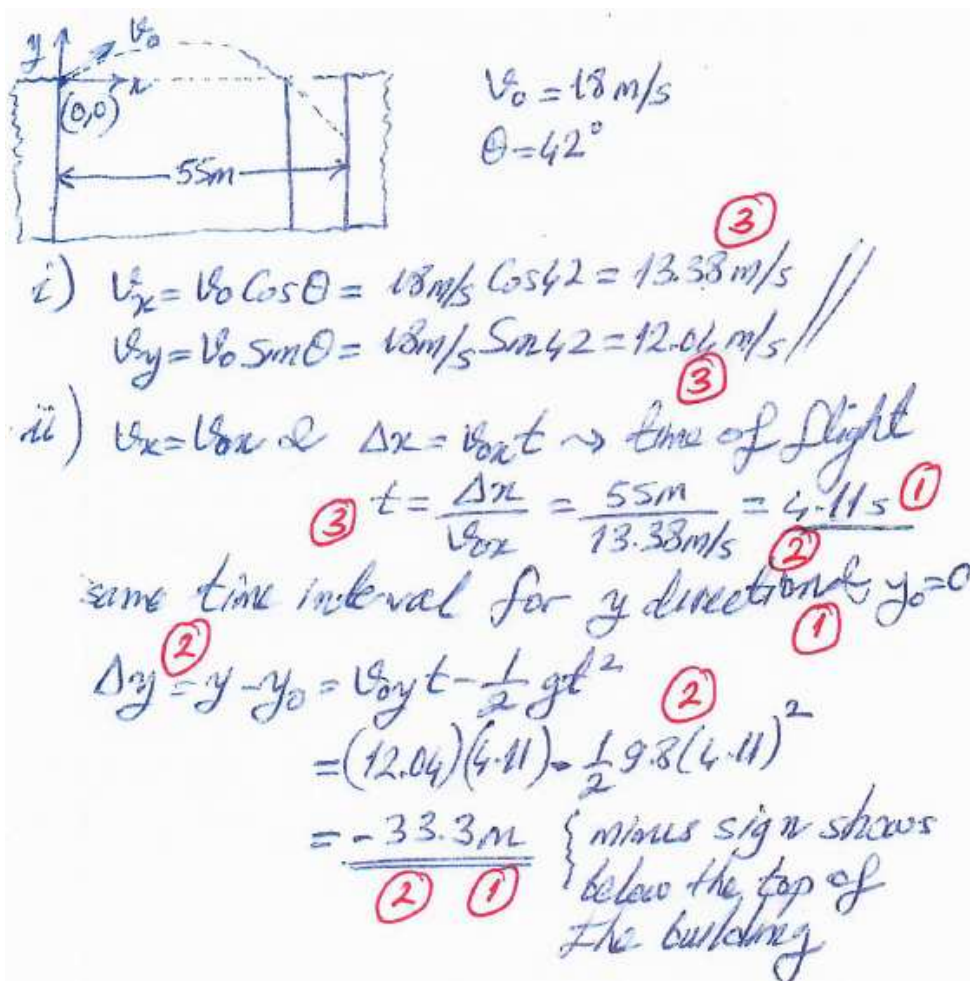 y v₀
x
(0,0)
55m
v₀ = 18 m/s
θ = 42°
③
i) vₓ = v₀ Cos θ = 18 m/s Cos 42 = 13.38 m/s //
v_y = v₀ Sin θ = 18 m/s Sin 42 = 12.04 m/s
③
ii) vₓ = v₀ₓ & Δx = v₀ₓ t ⇝ time of flight
③ t = Δx / v₀ₓ = 55m / 13.38 m/s = 4.11 s ①
②
same time interval for y direction & y₀ = 0
② ①
Δy = y - y₀ = v₀y t - 1/2 gt²
②
= (12.04)(4.11) - 1/2 9.8 (4.11)²
= -33.3 m { minus sign shows
② ① below the top of
the building